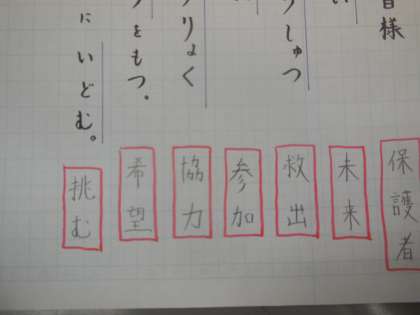 様
い
しゅつ
りょく
をもつ。
に いどむ。
保護者
未来
救出
参加
協力
希望
挑む